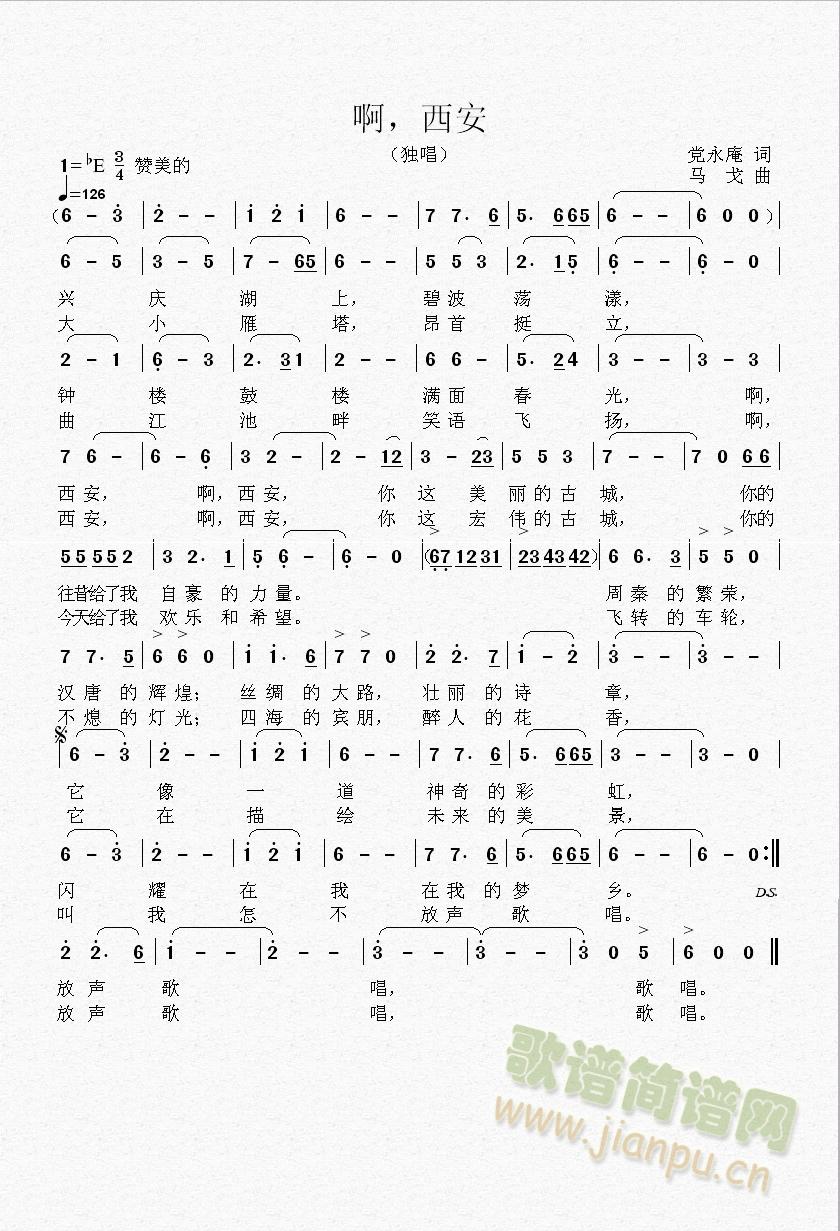 啊，西安
（独唱）
1=♭E 3/4 赞美的
党永庵 词
♩=126
马 戈 曲
(6 - 3̇ | 2̇ - - | 1̇ 2̇ 1̇ | 6 - - | 7 7· 6 | 5· 665 | 6 - - | 6 0 0 )|
6 - 5 | 3 - 5 | 7 - 65 | 6 - - | 5 5 3 | 2· 15̣ | 6̣ - - | 6̣ - 0 |
兴 庆 湖 上， 碧波 荡 漾，
大 小 雁 塔， 昂首 挺 立，
2 - 1 | 6̣ - 3 | 2· 31 | 2 - - | 6 6 - | 5· 24 | 3 - - | 3 - 3 |
钟 楼 鼓 楼 满面 春 光， 啊，
曲 江 池 畔 笑语 飞 扬， 啊，
7 6 - | 6 - 6̣ | 3 2 - | 2 - 12 | 3 - 23 | 5 5 3 | 7 - - | 7 0 66 |
西安， 啊，西安， 你 这 美 丽的古 城， 你的
西安， 啊，西安， 你 这 宏 伟的古 城， 你的
55552 | 3 2· 1 | 5̣ 6̣ - | 6̣ - 0 | (6̣7̣1231 | 234342) | 6 6· 3 | 5 5 0 |
往昔给了我 自豪 的 力量。 周秦 的 繁荣，
今天给了我 欢乐 和 希望。 飞转 的 车轮，
7 7· 5 | 6 6 0 | 1̇ 1̇· 6 | 7 7 0 | 2̇ 2̇· 7 | 1̇ - 2̇ | 3̇ - - | 3̇ - - |
汉唐 的 辉煌； 丝绸 的 大路， 壮丽 的 诗 章，
不熄 的 灯光； 四海 的 宾朋， 醉人 的 花 香，
𝄋
6 - 3̇ | 2̇ - - | 1̇ 2̇ 1̇ | 6 - - | 7 7· 6 | 5· 665 | 3 - - | 3 - 0 |
它 像 一 道 神奇 的 彩 虹，
它 在 描 绘 未来 的 美 景，
6 - 3̇ | 2̇ - - | 1̇ 2̇ 1̇ | 6 - - | 7 7· 6 | 5· 665 | 6 - - | 6 - 0 :‖
闪 耀 在 我 在我 的 梦 乡。 D.S.
叫 我 怎 不 放声 歌 唱。
2̇ 2̇· 6 | 1̇ - - | 2̇ - - | 3̇ - - | 3̇ - - | 3̇ 0 5̇ | 6̇ 0 0 ‖
放声 歌 唱， 歌 唱。
放声 歌 唱， 歌 唱。
歌谱简谱网
www.jianpu.cn